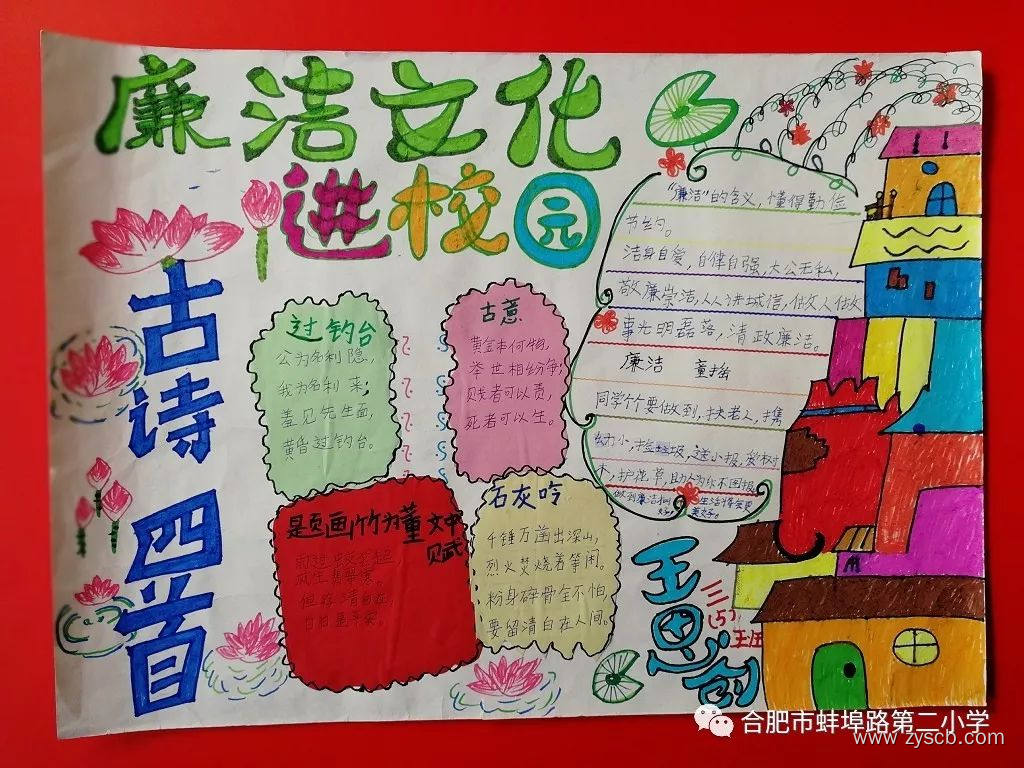 廉洁文化
进校园
古诗四首
过钓台
公为名利隐，
我为名利来；
羞见先生面，
黄昏过钓台。
古意
黄金本何物，
举世相纷争；
贱者可以贵，
死者可以生。
是页画竹为董文中
赋
但
石灰吟
千锤万凿出深山，
烈火焚烧若等闲。
粉身碎骨全不怕，
要留清白在人间。
"廉洁"的含义，懂得勤俭
节约。
洁身自爱，自律自强，大公无私，
敬廉崇洁，人人讲诚信，做人做
事光明磊落，清政廉洁。
廉洁 童摇
同学个个要做到，扶老人，携
幼小，捡垃圾，送小报，爱树
木，护花草，助人为乐不图报，
做到廉洁 生活将会更
美好。
王思创
三(5)
合肥市蚌埠路第二小学
www.zyscb.com